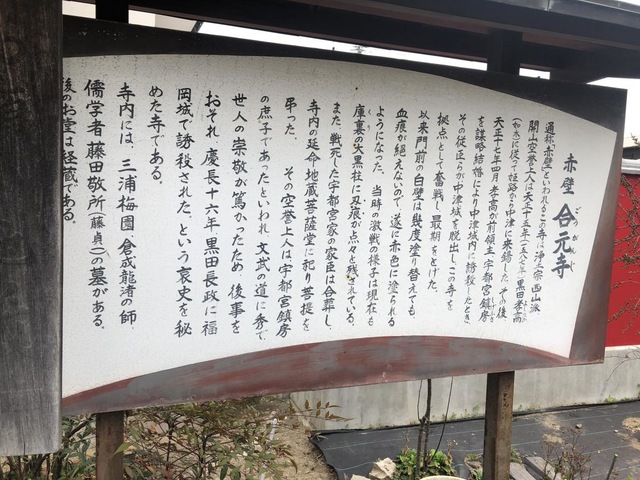 赤壁 合元寺
ごうがんじ
通称「赤壁」といわれるこの寺は、浄土宗西山派
開山空誉上人は天正十五年(一五八七年)黒田孝高
(如水)に従って姫路から中津に来錫した。その後
天正十七年四月、孝高が前領主宇都宮鎮房
を謀略結婚により中津城内に謗殺したとき
その従臣らが中津城を脱出し、この寺を
拠点として奮戦し最期をとげた。
以来門前の白壁は幾度塗り替えても
血痕が絶えないので、遂に赤色に塗られる
ようになった。当時の激戦の様子は現在も
庫裏の大黒柱に刃痕が点々と残されている。
また、戦死した宇都宮家の家臣は合葬し、
寺内の延命地蔵菩薩堂に祀り菩提を
弔った。 その空誉上人は宇都宮鎮房
の庶子であったといわれ、文武の道に秀で、
世人の崇敬が篤かったため、後事を
おそれ、慶長十六年黒田長政に福
岡城で誘殺された。という哀史を秘
めた寺である。
寺内には、三浦梅園、倉成龍渚の師、
儒学者藤田敬所(藤貞一)の墓がある。
後のお堂は経蔵である。